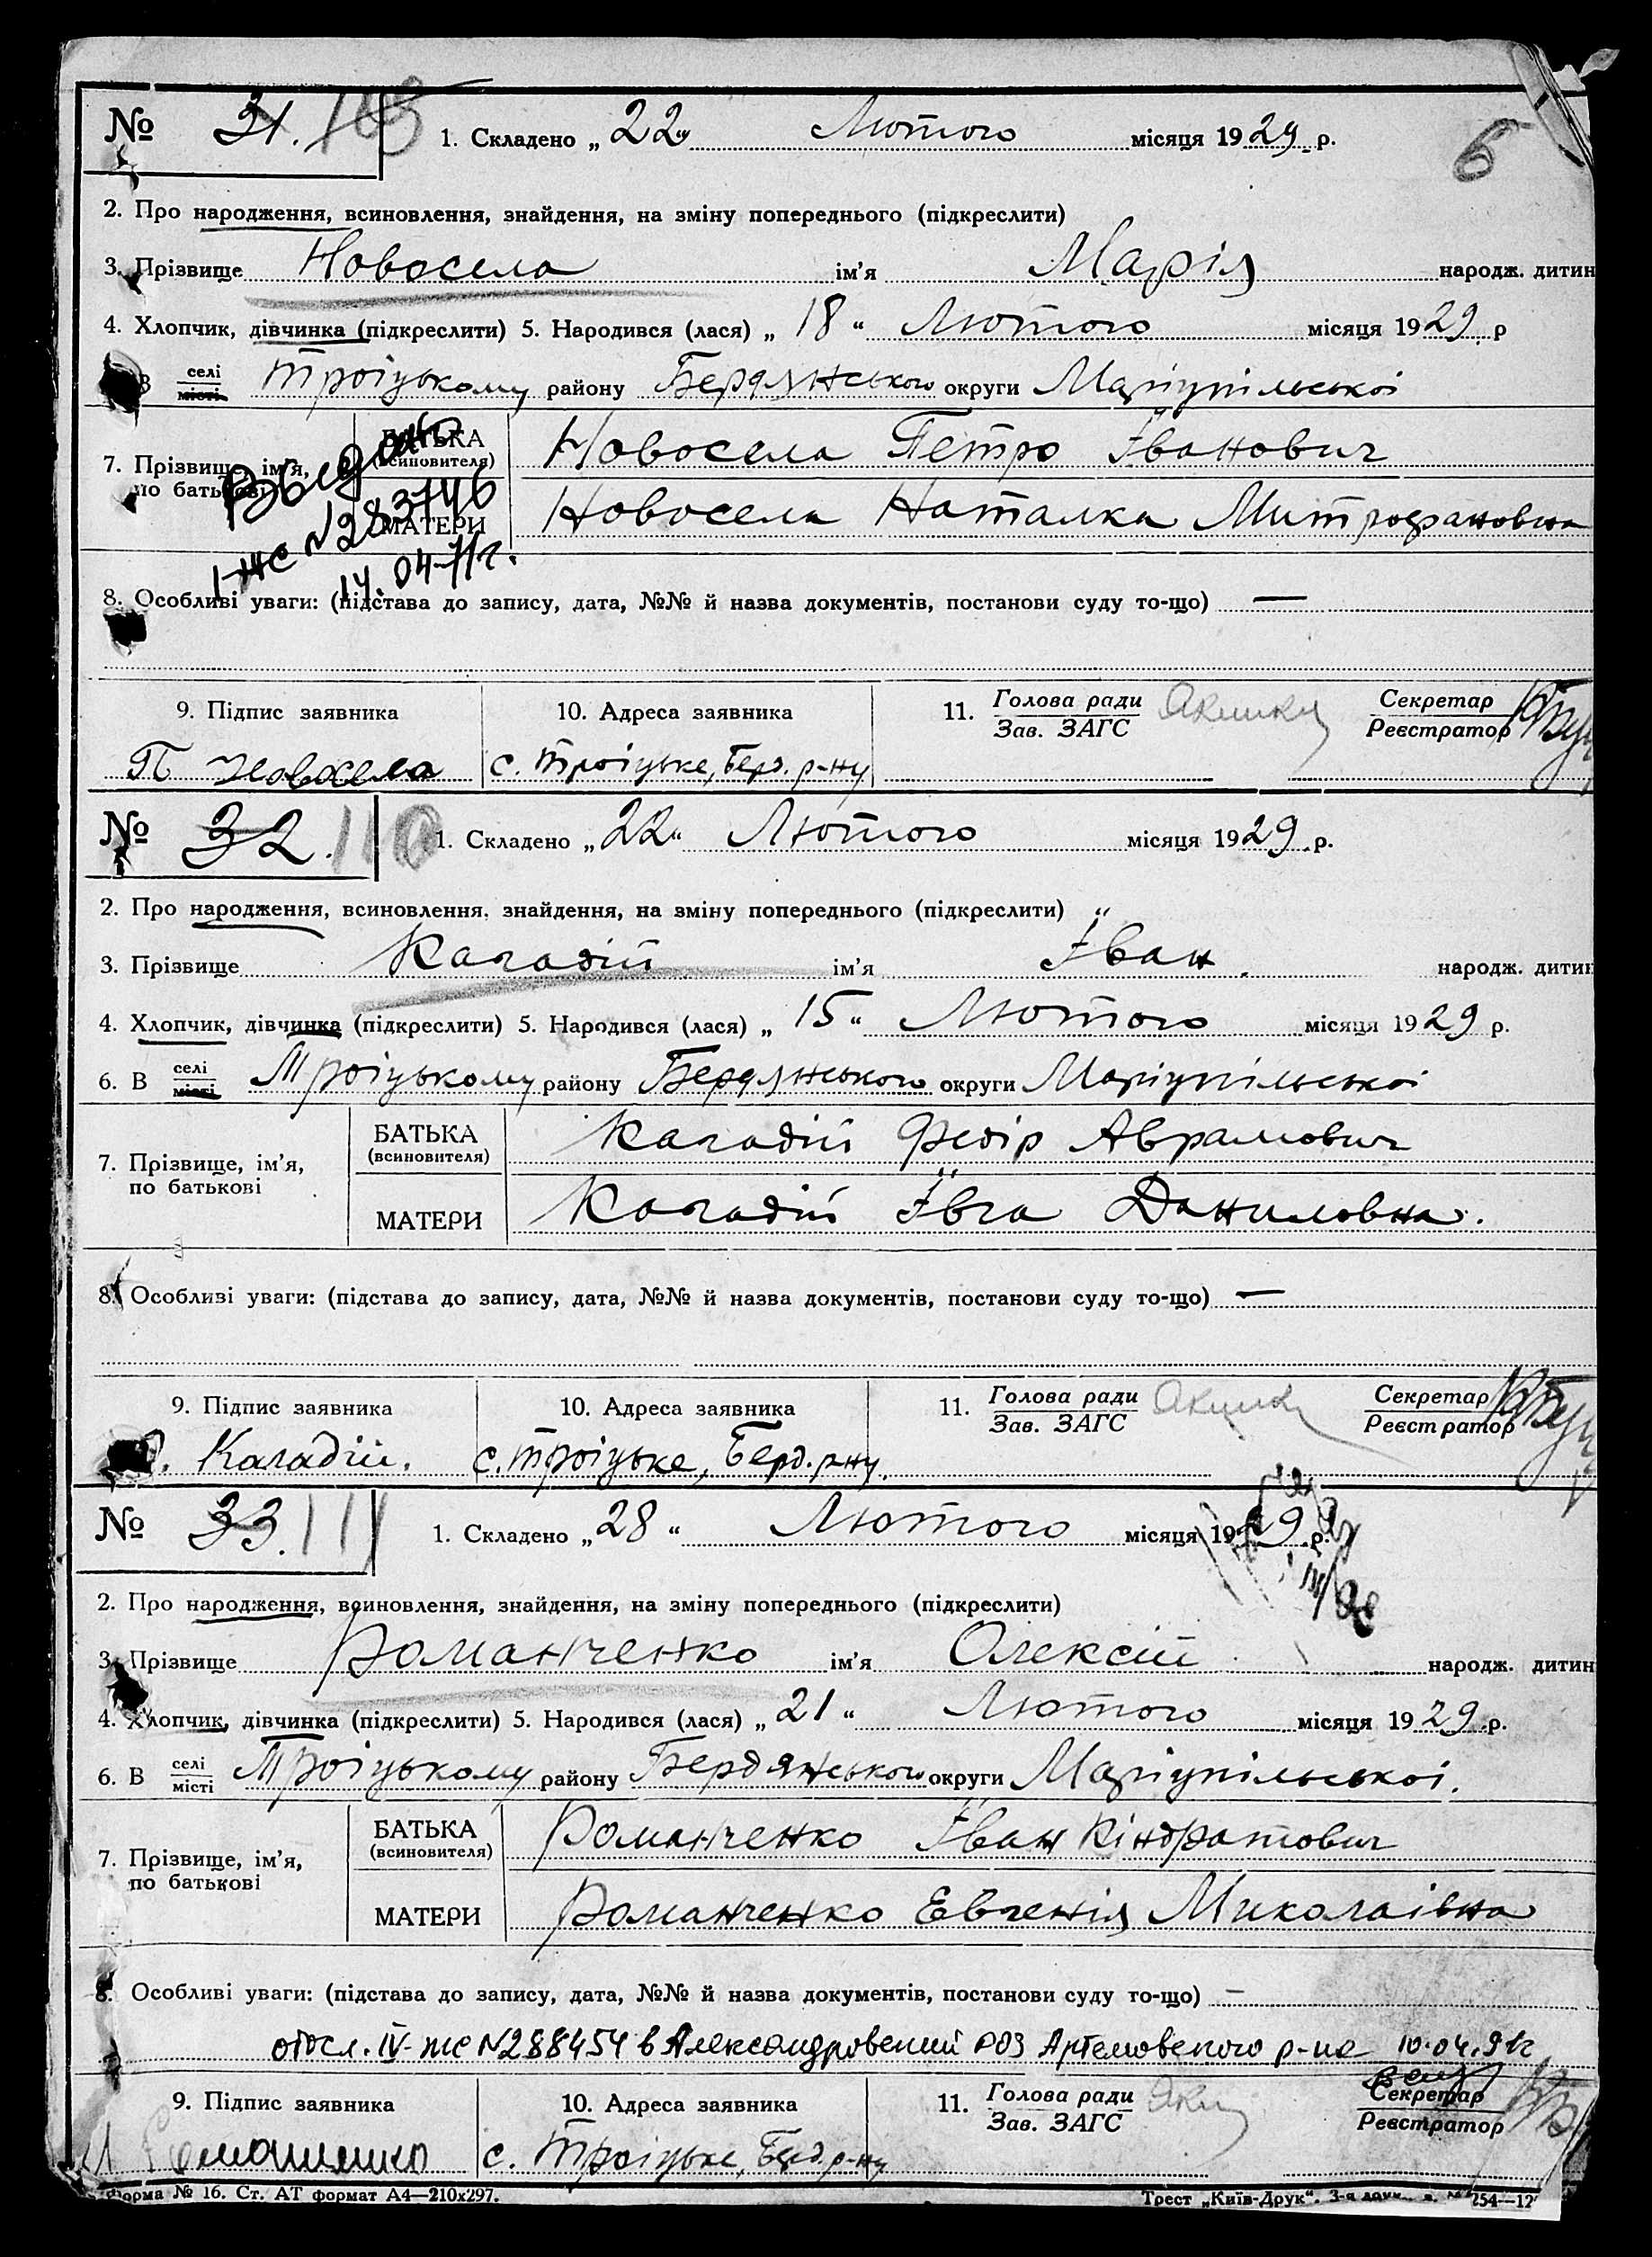 № 31. 1. Складено „ 22 “ Лютого місяця 1929 р.
6
2. Про народження, всиновлення, знайдення, на зміну попереднього (підкреслити)
3. Прізвище Новосела ім'я Марія народж. дитин
4. Хлопчик, дівчинка (підкреслити) 5. Народився (лася) „ 18 “ Лютого місяця 1929 р
В селі місті Троіцькому району Бердянського округи Маріупільськоі
7. Прізвище, ім'я, по батькові
БАТЬКА (всиновителя) Новосела Петро Іванович
МАТЕРИ Новосела Наталка Митрофановна
Выдано
I-жс N 283746
14.04.71г.
8. Особливі уваги: (підстава до запису, дата, №№ й назва документів, постанови суду то-що) —
9. Підпис заявника 10. Адреса заявника 11. Голова ради Зав. ЗАГС Секретар Реєстратор
П Новосела с. Троіцьке, Берд. р-ну
№ 32. 110 1. Складено „ 22 “ Лютого місяця 1929 р.
2. Про народження, всиновлення, знайдення, на зміну попереднього (підкреслити)
3. Прізвище Каладій ім'я Іван народж. дитин
4. Хлопчик, дівчинка (підкреслити) 5. Народився (лася) „ 15 “ Лютого місяця 1929 р.
6. В селі місті Троіцькому району Бердянського округи Маріупільськоі
7. Прізвище, ім'я, по батькові
БАТЬКА (всиновителя) Каладій Федір Аврамович
МАТЕРИ Каладій Ївга Даниловна.
8. Особливі уваги: (підстава до запису, дата, №№ й назва документів, постанови суду то-що) —
9. Підпис заявника 10. Адреса заявника 11. Голова ради Зав. ЗАГС Секретар Реєстратор
Каладій. с. Троіцьке, Берд. р-ну.
№ 33. 111 1. Складено „ 28 “ Лютого місяця 1929 р.
2. Про народження, всиновлення, знайдення, на зміну попереднього (підкреслити)
3. Прізвище Романченко ім'я Олексій народж. дитин
4. Хлопчик, дівчинка (підкреслити) 5. Народився (лася) „ 21 “ Лютого місяця 1929 р.
6. В селі місті Троіцькому району Бердянського округи Маріупільськоі.
7. Прізвище, ім'я, по батькові
БАТЬКА (всиновителя) Романченко Іван Кіндратович
МАТЕРИ Романченко Евгенія Миколаівна
8. Особливі уваги: (підстава до запису, дата, №№ й назва документів, постанови суду то-що) —
отосл. IV-жс N288454 в Александровский РОЗ Артемовского р-на 10.04.91г
9. Підпис заявника 10. Адреса заявника 11. Голова ради Зав. ЗАГС Секретар Реєстратор
с. Троіцьке, Берд. р-ну
Форма № 16. Ст. АТ формат А4—210х297. Трест „Київ-Друк“. 254—12